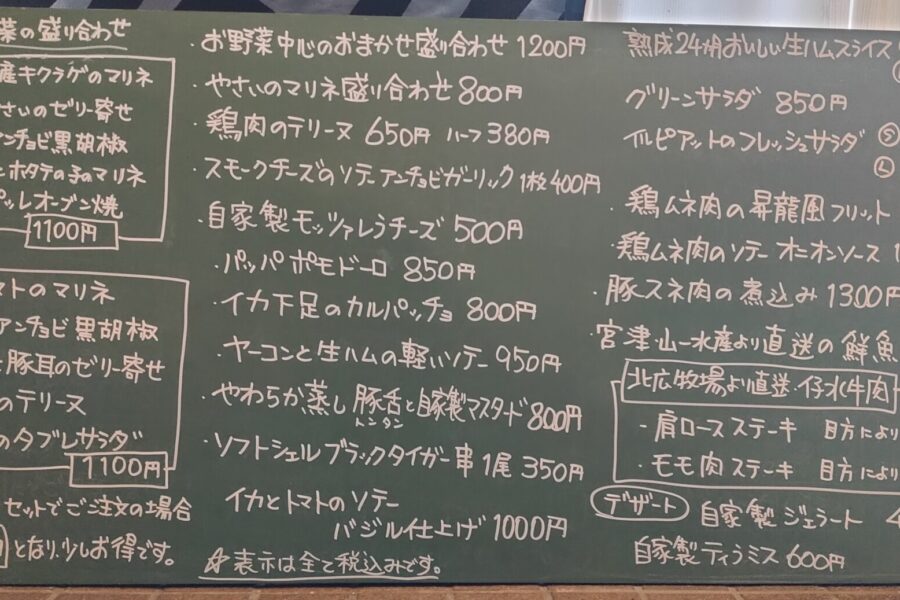 菜の盛り合わせ
産キクラゲのマリネ
さいのゼリー寄せ
アンチョビ黒胡椒
とホタテの子のマリネ
オーブン焼
1100円
マトのマリネ
アンチョビ黒胡椒
と豚耳のゼリー寄せ
のテリーヌ
のタブレサラダ
1100円
セットでご注文の場合
となり、少しお得です。
・お野菜中心のおまかせ盛り合わせ 1200円
・やさいのマリネ盛り合わせ 800円
・鶏肉のテリーヌ 650円 ハーフ 380円
・スモークチーズのソテーアンチョビガーリック 1枚400円
・自家製モッツァレラチーズ 500円
・パッパポモドーロ 850円
・イカ下足のカルパッチョ 800円
・ヤーコンと生ハムの軽いソテー 950円
・やわらか蒸し豚舌と自家製マスタード 800円
トンタン
・ソフトシェルブラックタイガー串 1尾 350円
イカとトマトのソテー
バジル仕上げ 1000円
☆表示は全て税込みです。
熟成24ヶ月おいしい生ハムスライス
グリーンサラダ 850円
イルピアットのフレッシュサラダ Ⓢ
Ⓛ
・鶏ムネ肉の昇龍風フリット
・鶏ムネ肉のソテー オニオンソース
・豚スネ肉の煮込み 1300円
・宮津・山一水産より直送の鮮魚
北広牧場より直送・仔水牛肉
・肩ロースステーキ 目方により
・モモ肉ステーキ 目方により
デザート 自家製ジェラート
自家製ティラミス 600円